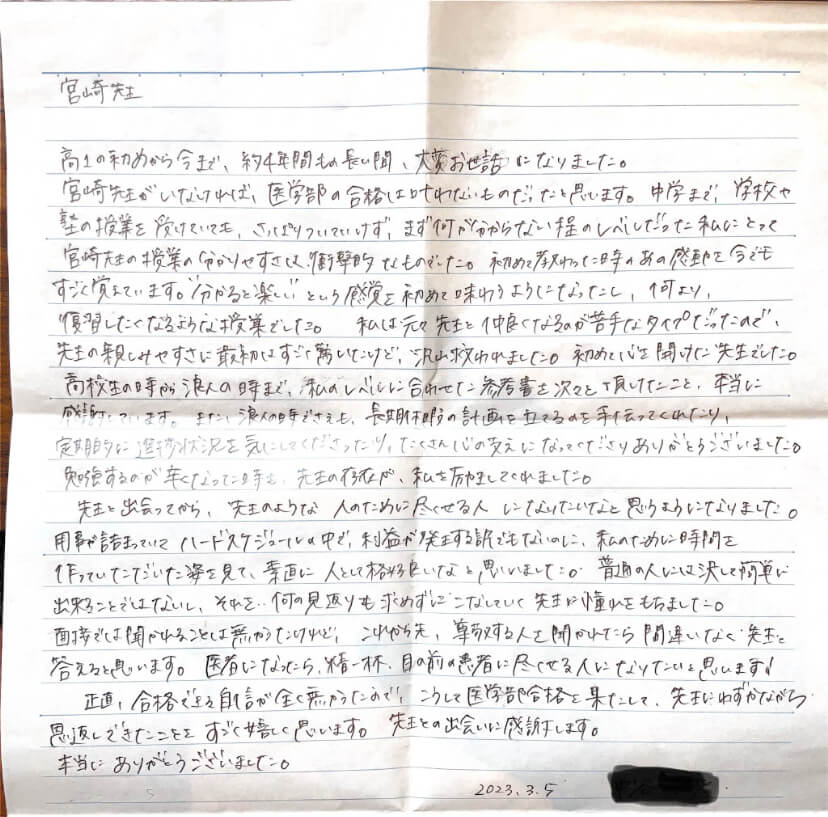 宮崎先生
高1の初めから今まで、約4年間もの長い間、大変お世話になりました。
宮崎先生がいなければ、医学部の合格は叶わないものだったと思います。中学まで、学校や
塾の授業を受けていても、さっぱりついていけず、まず何が分からない程のレベルだった私にとって
宮崎先生の授業の分かりやすさは、衝撃的なものでした。初めて教わった時のあの感動を今でも
すごく覚えています。"分かると楽しい"という感覚を初めて味わうようになったし、何より、
復習したくなるような授業でした。私は元々先生と仲良くなるのが苦手なタイプだったので、
先生の親しみやすさに最初はすごく驚いたけど、沢山救われました。初めて心を開けた先生でした。
高校生の時から浪人の時まで、私のレベルに合わせた参考書を次々と頂けたこと、本当に
感謝しています。また、浪人の時でさえも、長期休暇の計画を立てるのを手伝ってくれたり、
定期的に進捗状況を気にしてくださったり、たくさん心の支えになってくださりありがとうございました。
勉強するのが辛くなった時も、先生の存在が、私を励ましてくれました。
先生と出会ってから、先生のような人のために尽くせる人になりたいなと思うようになりました。
用事が詰まっていてハードスケジュールの中で、利益が発生する訳でもないのに、私のために時間を
作っていただいた姿を見て、素直に人として格好良いなと思いました。普通の人には決して簡単に
出来ることではないし、それを、何の見返りも求めずにこなしていく先生に憧れをもちました。
面接では聞かれることは無かったけれど、これから先、尊敬する人を聞かれたら間違いなく先生と
答えると思います。医者になったら、精一杯、目の前の患者に尽くせる人になりたいと思います!
正直、合格できる自信が全く無かったので、こうして医学部合格を果たして、先生にわずかながら
恩返しできたことをすごく嬉しく思います。先生との出会いに感謝します。
本当にありがとうございました。
2023.3.5